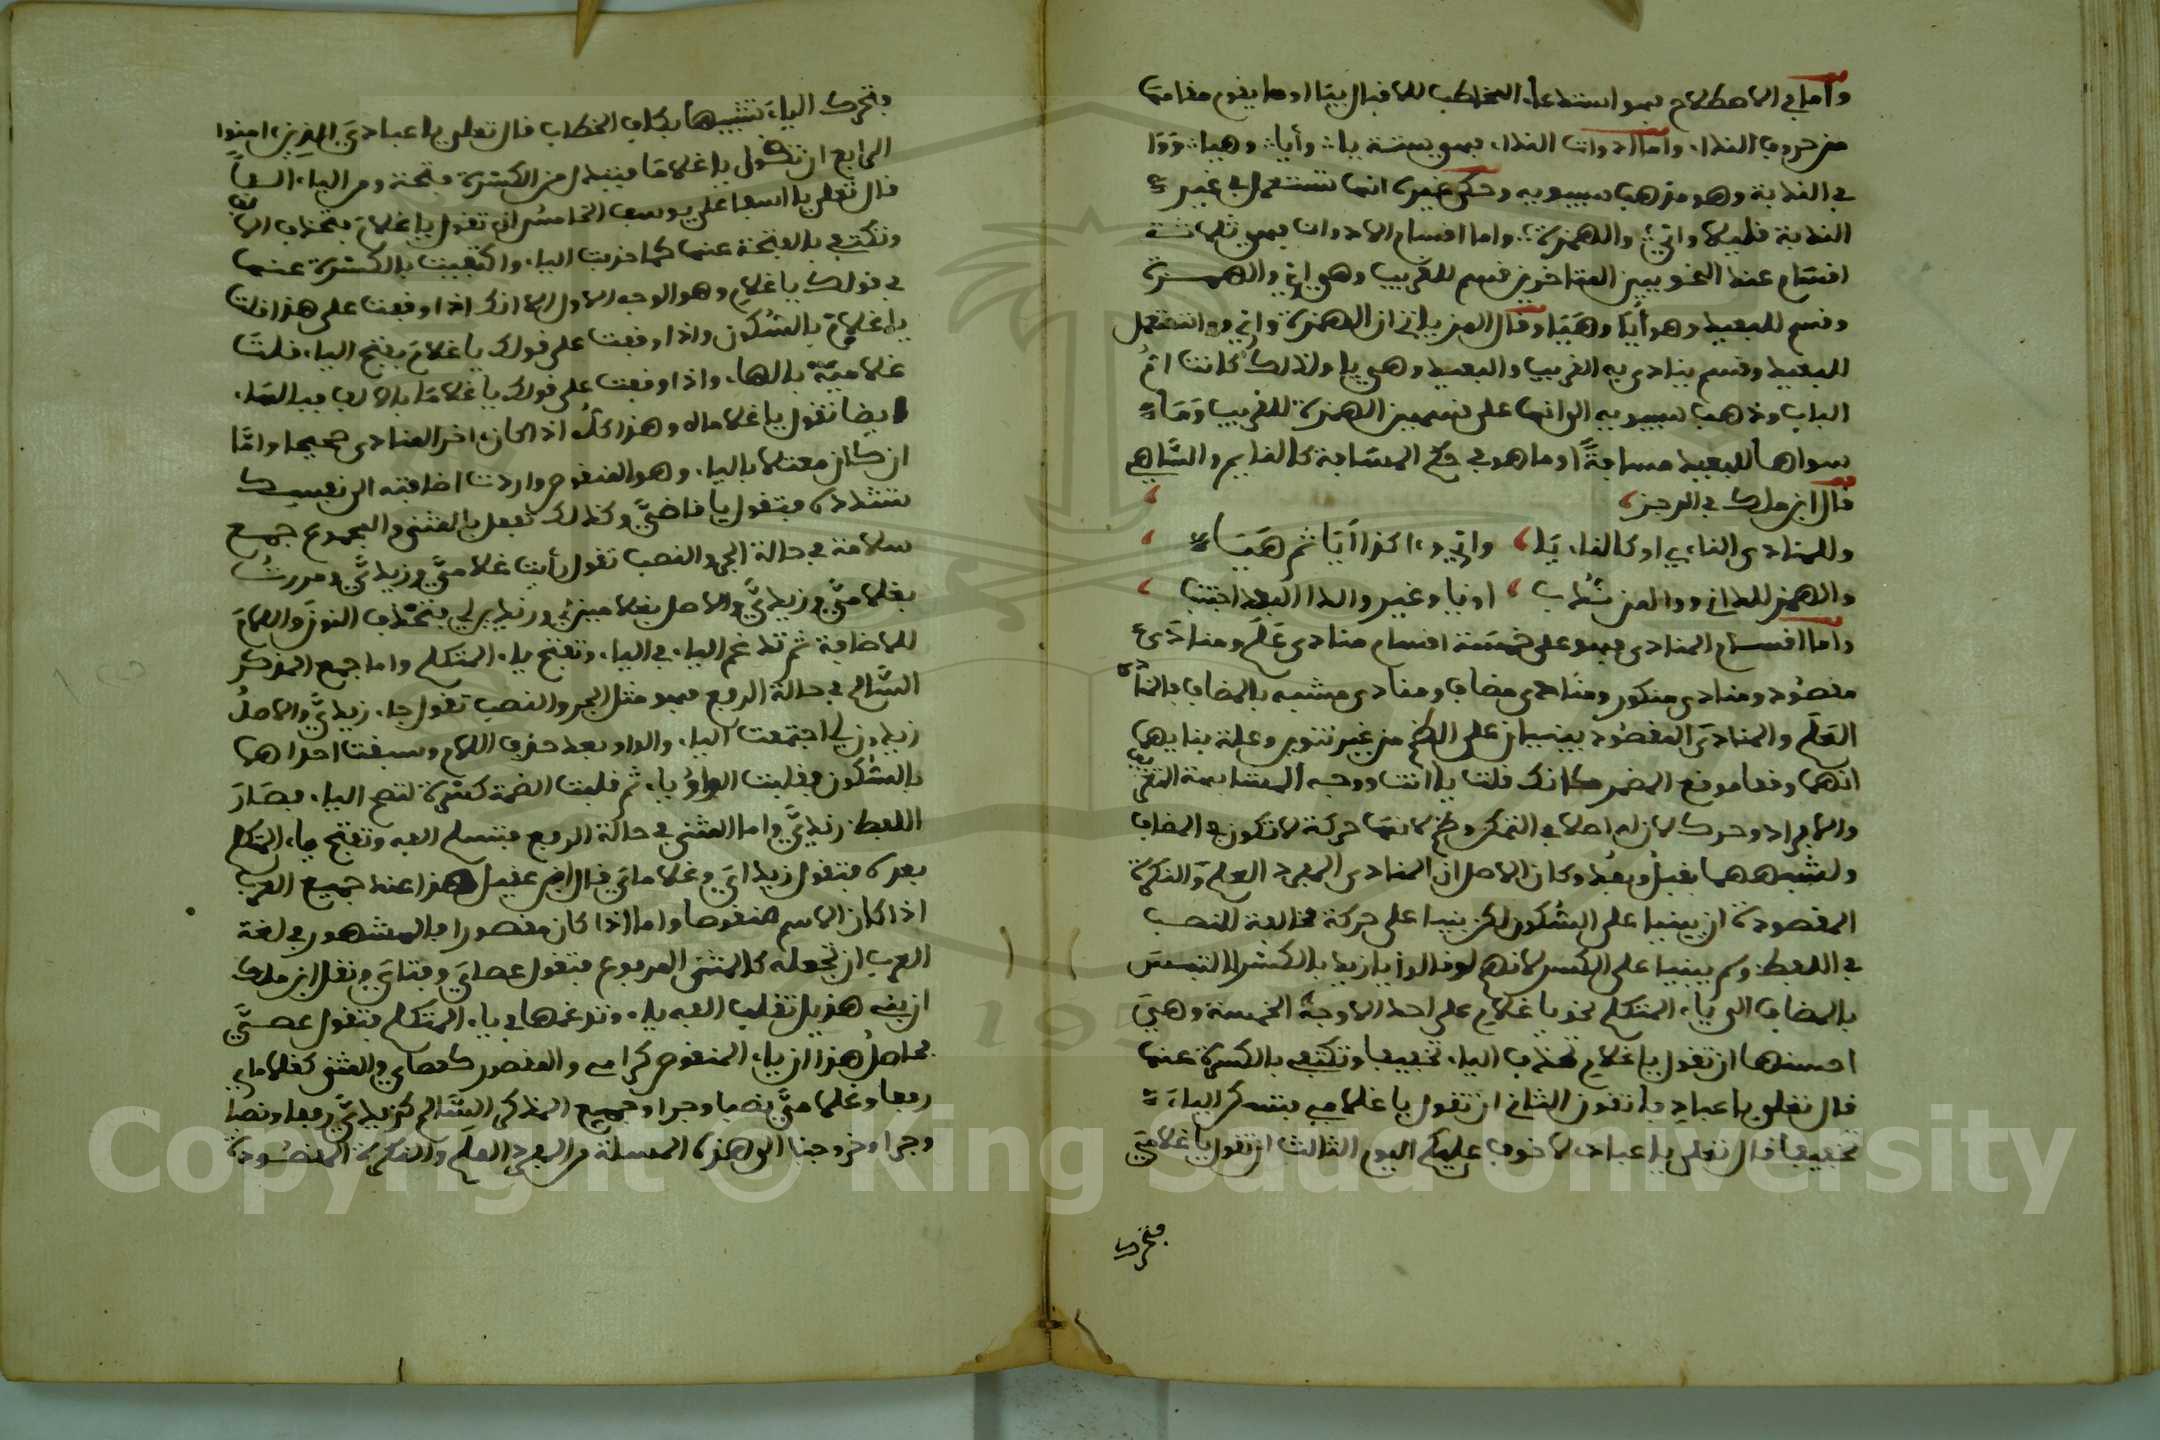 وأما في الاصطلاح فهو استدعاء المخاطب للاقبال بيا او ما يقوم مقامها
من حروف النداء وأما ادوات النداء فهي ستة يا وأيا وهيا ووا
في الندبة وهو مذهب سيبويه وحكى غيره انها تستعمل في غير
الندبة قليلا واي والهمزة واما اقسام الادوات فهي ثلاثة
اقسام عند النحويين المتاخرين قسم للقريب وهي اي والهمزة
وقسم للبعيد وهو أيا وهيا وقال ان الهمزة واي
للبعيد وقسم ينادى به القريب والبعيد وهي يا ولذلك كانت ام
الباب وذهب سيبويه الى انها على قسمين الهمزة للقريب وما
سواها للبعيد مسافة او ما هو في حكم المسافة كالنايم والساهي
قال ابن ملك في الرجز
وللمنادى الناء او كالناء يا واي وءا كذا أيا ثم هيا
والهمز للداني ووا لمن ندب او يا وغير وا لدا اللبس اجتنب
واما اقسام المنادى فهو على خمسة اقسام منادى علم ومنادى
مقصود ومنادى منكور ومنادى مضاف ومنادى مشبه بالمضاف فالمنادى
العلم والمنادى المقصود يبنيان على الضم من غير تنوين وعلة بنايهما
انهما وقعا موقع المضمر كانك قلت يا انت ووجه المشابهة التعريف
والافراد وحرك لان له اصلا في التمكن وضم لانها حركة لا تكون في المضاف
ولشبههما بقبل وبعد وكان الاصل ان المنادى المفرد العلم والنكرة
المقصودة ان يبنيا على السكون لكن بنيا على حركة مخالفة للنصب
في اللفظ ولم يبنيا على الكسر لانهم لو قالوا يا زيد بالكسر لالتبس
بالمضاف الى ياء المتكلم نحو يا غلام على احد الاوجه الخمسة وهي
احسنها ان تقول يا غلام تحذف الياء تخفيفا وتكتفي بالكسرة عنها
قال تعلى يا عباد فاتقون الثاني ان تقول يا غلامي بتسكن الياء
تخفيفا قال تعلى يا عبادي لا خوف عليكم اليوم الثالث ان تقول يا غلامي
فتحرك
فتحرك الياء تشبيها بكاف الخطاب قال تعلى يا عبادي الذين امنوا
الرابع ان تقول يا غلاما فتبدل من الكسرة فتحة ومن الياء الفا
قال تعلى يا اسفا على يوسف الخامس ان تقول يا غلام بحذف الالف
وتكتفي بالفتحة عنها كما حذفت الياء واكتفيت بالكسرة عنها
في قولك يا غلام وهو الوجه الاول الا انك اذا وقفت على هذا قلت
يا غلام بالسكون واذا وقفت على قولك يا غلامي بفتح الياء قلت
غلاميه بالهاء واذا وقفت على قولك يا غلاما بالالف فبالهاء
ايضا تقول يا غلاماه وهذا كله اذا كان اخر المنادى صحيحا واما
ان كان معتلا بالياء وهو المنقوص واردت اضافته الى نفسك
شددته فتقول يا قاضي وكذلك تفعل بالمثنى والمجموع جمع
سلامة في حالة الجر والنصب تقول رأيت غلامي وزيدي ومررت
بغلامي وزيدي والاصل بغلامين لي وزيدين لي فتحذف النون واللام
للاضافة ثم تدغم الياء في الياء وتفتح ياء المتكلم واما جمع المذكر
السالم في حالة الرفع فهو مثل الجر والنصب تقول جاء زيدي والاصل
زيدون لي اجتمعت الياء والواو بعد حذف اللام وسبقت احداهما
بالسكون فقلبت الواو ياء ثم قلبت الضمة كسرة لتصح الياء فصار
اللفظ زيدي واما المثنى في حالة الرفع فتسلم الفه وتفتح ياء المتكلم
بعده فتقول زيداي وغلاماي قال ابن عقيل هذا عند جميع العرب
اذا كان الاسم منقوصا واما اذا كان مقصورا فالمشهور في لغة
العرب ان تجعله كالمثنى المرفوع فتقول عصاي وفتاي ونقل ابن ملك
ان لغة هذيل تقلب الفه ياء وتدغمها في ياء المتكلم فتقول عصي
فحاصل هذا ان ياء المنقوص كرامي والمقصور كعصاي والمثنى كغلاماي
رفعا وغلامي نصبا وجرا وجميع المذكر السالم كزيدي رفعا ونصبا
وجرا وخروجنا الى هذه المسئلة من المفرد العلم والنكرة المقصودة
Copyright © King Saud University